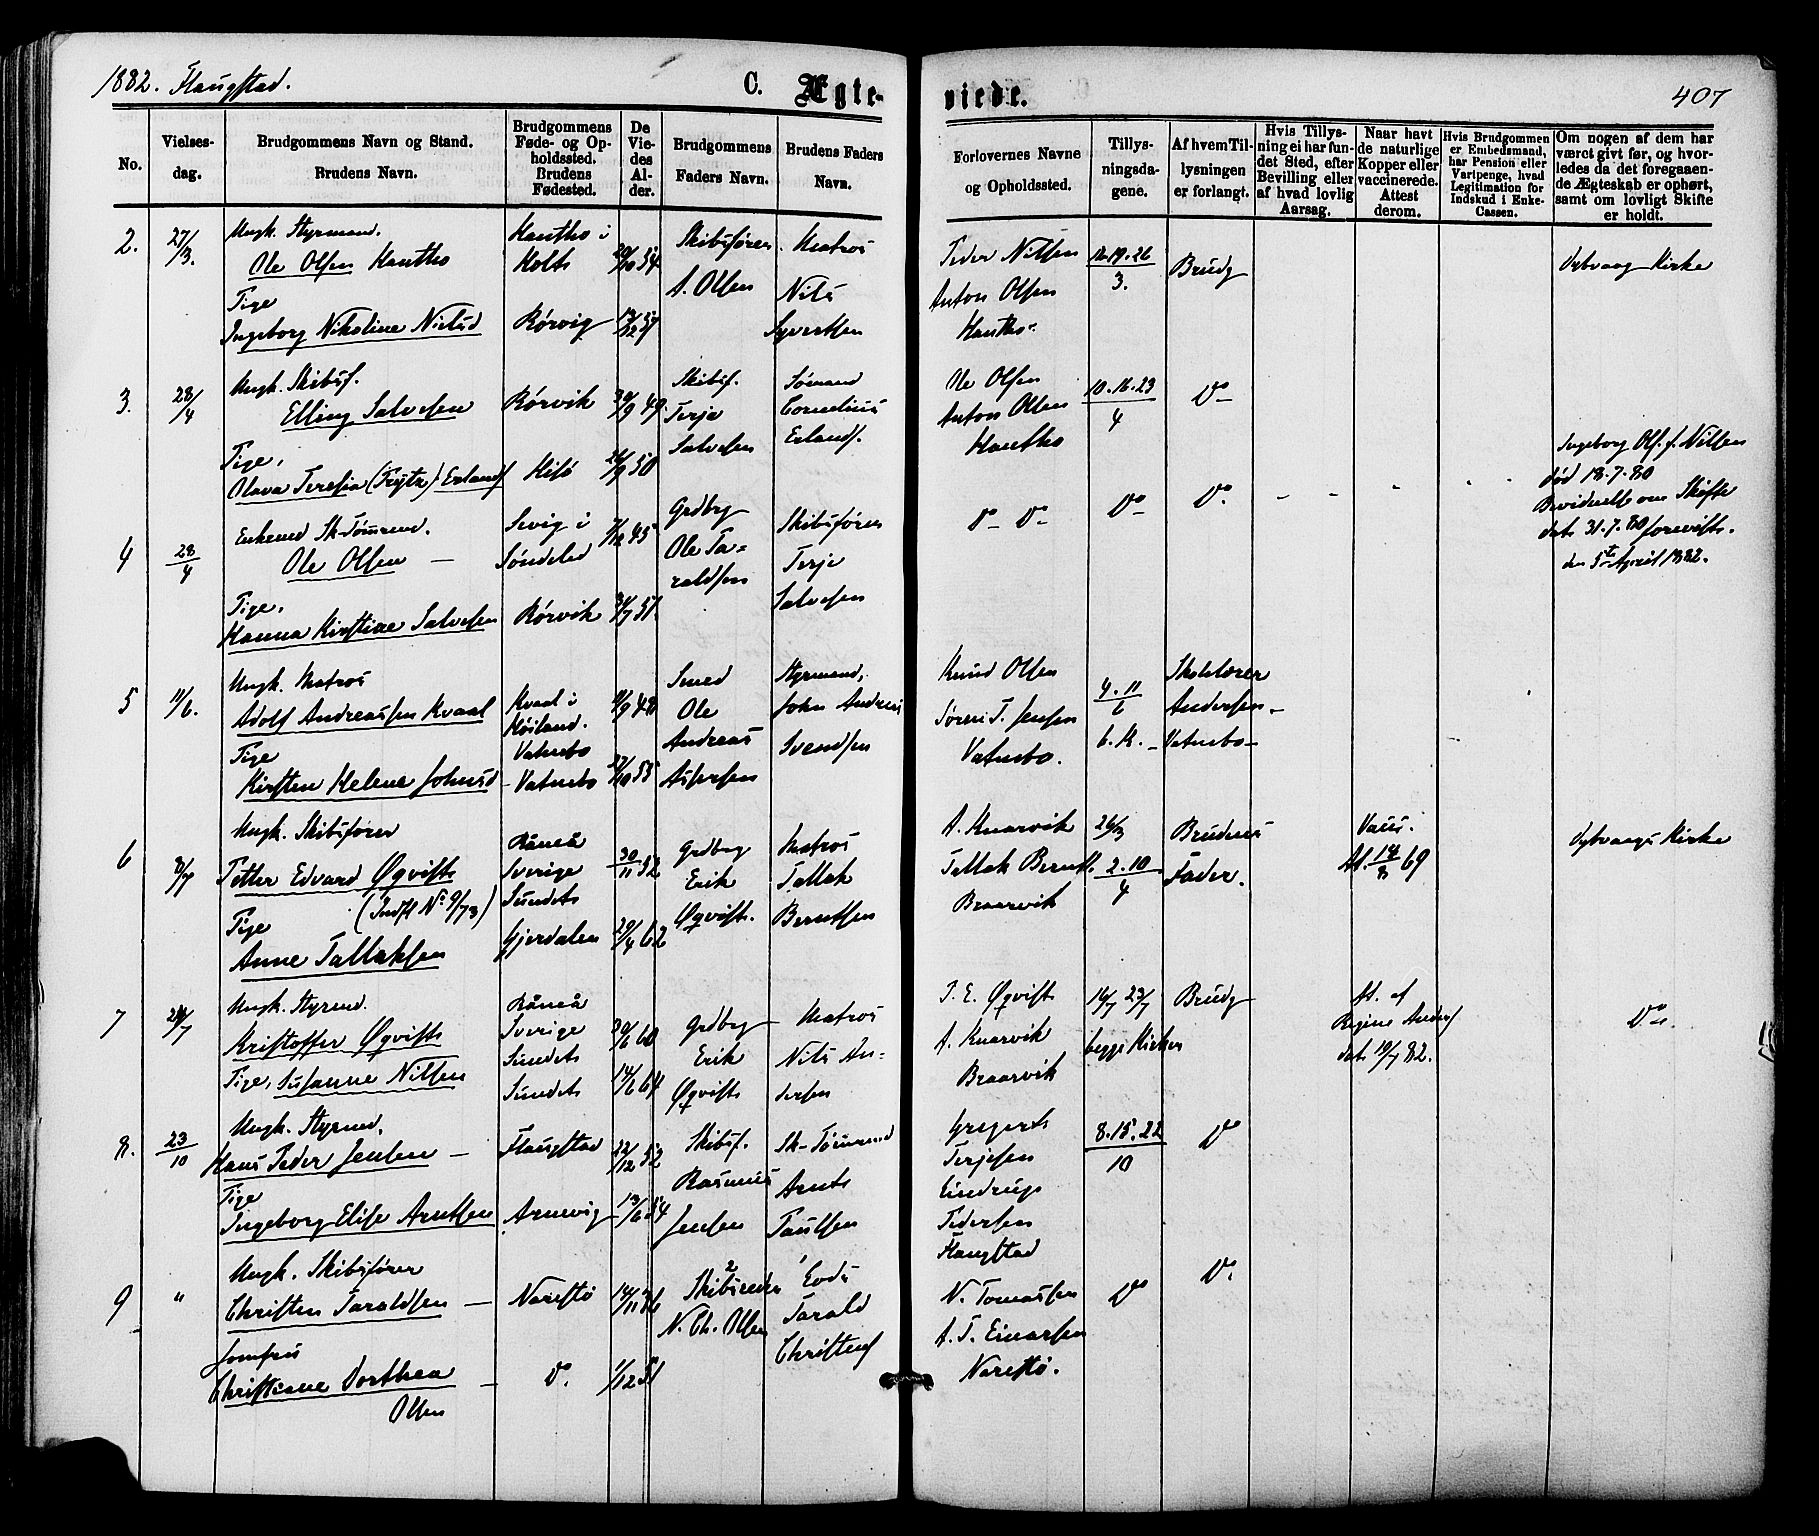 1882. Flaugstad.
C. Ægte-
viede.
407
No.
Vielses-
dag.
Brudgommens Navn og Stand.
Brudens Navn.
Brudgommens
Føde- og Op-
holdssted.
Brudens
Fødested.
De
Vie-
des
Al-
der.
Brudgommens
Faders Navn.
Brudens Faders
Navn.
Forlovernes Navne
og Opholdssted.
Tillys-
ningsda-
gene.
Af hvem Til-
lysningen
er forlangt.
Hvis Tillys-
ning ei har fun-
det Sted, efter
Bevilling eller
af hvad lovlig
Aarsag.
Naar havt
de naturlige
Kopper eller
vaccinerede.
Attest
derom.
Hvis Brudgommen
er Embedsmand,
har Pension eller
Vartpenge, hvad
Legitimation for
Indskud i Enke-
Cassen.
Om nogen af dem har
været givt før, og hvor-
ledes da det foregaaen-
de Ægteskab er ophørt,
samt om lovligt Skifte
er holdt.
2.
27/3.
Ungk. Styrmand.
Ole Olsen Hantho
Pige
Ingeborg Nikoline Nielsd
Hantho i
Holt
Rørvig
20/10 54
13/12 57
Skibsfører
A. Olsen
Matros
Nils
Syvertsen
Peder Nilsen
Anton Olsen
Hantho
12.19.26
3.
Brudg
Dybvaag Kirke
3.
28/4
Ungk. Skibsf.
Elling Salvesen
Pige,
Olava Teresia (Frytz) Erlandsf
Rørvik
Hisø
30/9 49.
26/9 50
Skibsf.
Terje
Salvesen
Sømand
Cornelius
Erlandf.
Ole Olsen
Anton Olsen
Hantho
10.16.23
4
Do
4
28
4
Enkemd Sk-Tømmd.
Ole Olsen
Pige,
Hanna Kirstine Salvesen
Sevig i
Søndeled
Rørvik
7/12 45
24/7 57
Grdbrg
Ole Ta-
raldsen
Skibsfører
Terje
Salvesen
Do Do
Do
Do
Ingeborg Ols. f. Nilsen
død 18.7.80
Bevidnelse om Skifte
dat. 31.7.80 forevist
den 5te April 1882.
5
11/6.
Ungk. Matros
Adolf Andreassen Kvaal
Pige
Kirsten Helene Johnsd
Kvaal i
Høiland.
Vatnebo
Vatnebo
11/9 48
27/10 55
Smed
Ole
Andreas
Aslersen
Styrmand,
John Andreas
Svendsen
Knud Olsen
Søren T. Jensen
Vatnebo.
4.11
6
b.K.
Skolelærer
Andersen
Vatnebo
6
8/7
Ungk. Skibsfører
Petter Edvard Øqvist
(Indfl No 9/73)
Pige
Anne Tallaksen
Råneå
Sverige
Sundet
Gjerdalen
30/11 52
29/4 62
Grdbrg
Erik
Øqvist.
Matros
Tallak
Berntsen
A. Knarvik
Tallak Bernts.
Braarvik
26/3
2.10
4
Brudens
Fader.
Vacc.
At. 18/8 69
Dybvaags Kirke
7
24/7
Ungk. Styrmd.
Kristoffer Øqvist
Pige, Susanne Nilsen
Råneå
Sverige
Sundet
Sundet
30/6 60
14/6 64
Grdbrg
Erik
Øqvist
Matros
Nils An-
dersen
P. E. Øqvist
A. Knarvik
Braarvik
16/7 23/7
begge Kirker
Brudg
At. af
Regine Anders
dat. 19/7 82.
Do.
8.
23
10
Ungk. Styrmd.
Hans Peder Jensen
Pige
Ingeborg Elise Arntsen
Flaugstad
Arnevig
22/12 52
13/6 54
Skibsf.
Rasmus
Jensen
Sk-Tømmrmd
Arnt
Paulsen
Gregert
Terjesen
Eindrup
Pedersen
Flaugstad
8.15.22
10
Do
9
"
Ungk. Skibsfører
Christen Taraldsen
Jomfru
Christiane Dorthea
Olsen
Narestø
Do.
14/11 36
1/12 51
2
Skibsreder
N. Ch. Olsen
1
Lods
Tarald
Christens
N. Tomassen
A. T. Einarsen
Narestø.
Do
Do.